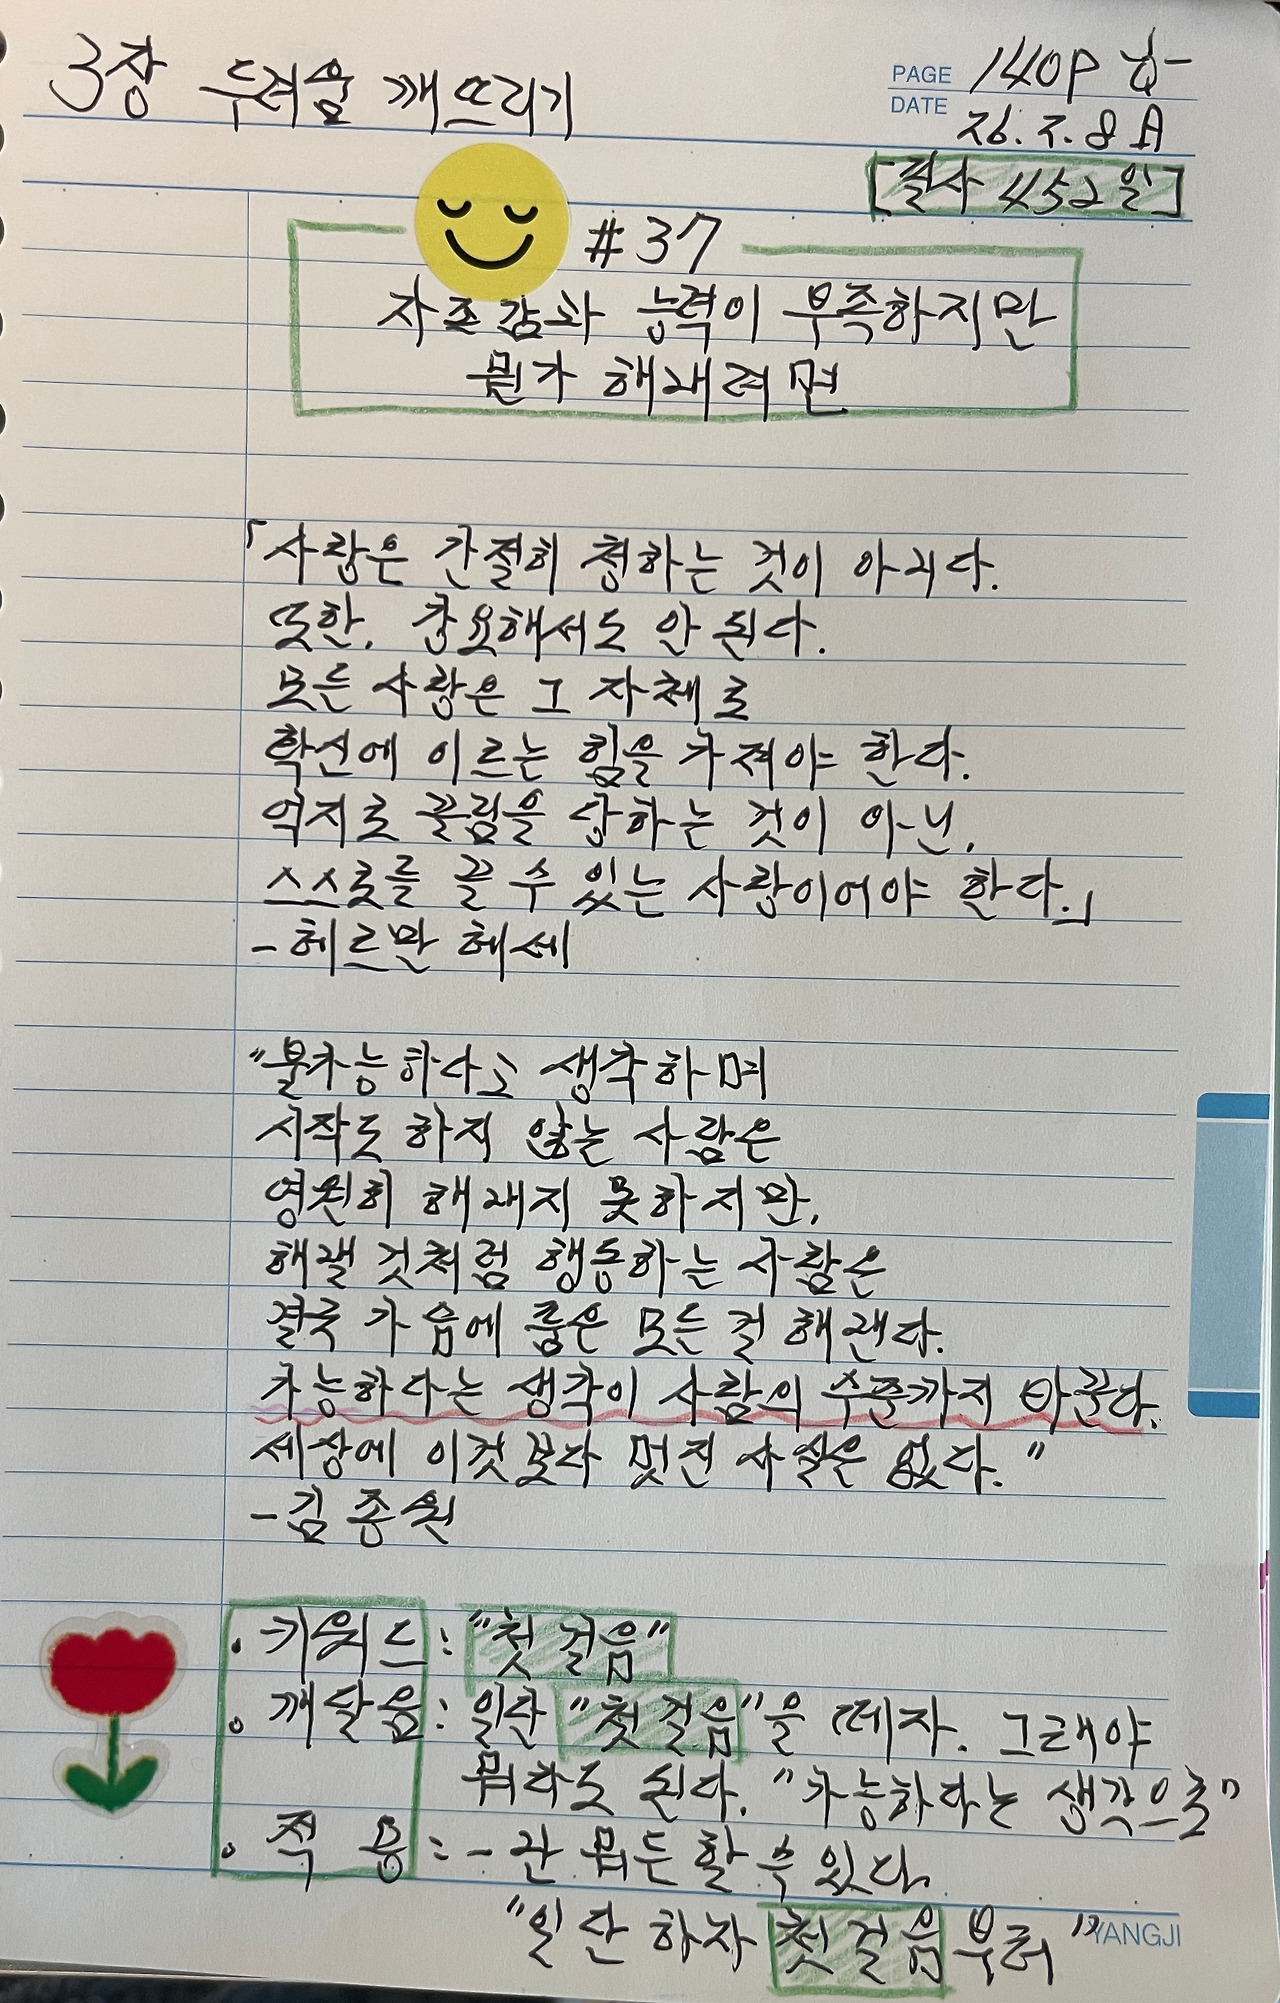 3장 두려움 깨뜨리기
PAGE 140P
DATE 26. 2. 8 日
[필사 452일]
#37
자존감과 능력이 부족하지만
뭔가 해내려면
「사랑은 간절히 청하는 것이 아니다.
또한, 강요해서도 안 된다.
모든 사랑은 그 자체로
확신에 이르는 힘을 가져야 한다.
억지로 끌림을 당하는 것이 아닌,
스스로를 끌 수 있는 사랑이어야 한다.」
-헤르만 헤세
"불가능하다고 생각하며
시작도 하지 않는 사람은
영원히 해내지 못하지만,
해낼 것처럼 행동하는 사람은
결국 가슴에 품은 모든 걸 해낸다.
가능하다는 생각이 사람의 수준까지 바꾼다.
세상에 이것보다 멋진 사실은 없다."
-김종원
• 키워드 : "첫 걸음"
• 깨달음 : 일단 "첫 걸음"을 떼자. 그래야
뭐라도 된다. "가능하다는 생각으로"
• 적용 : - 난 뭐든 할 수 있다.
"일단 하자 첫 걸음부터"
YANGJI